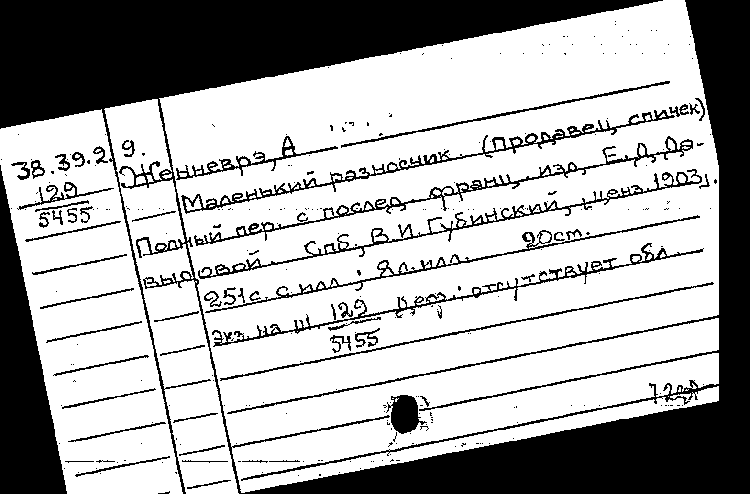 38.39.2.9.
129
5455
Женневрэ, А
Маленький разносчик. (Продавец спичек)
Полный пер. с послед. франц. изд. Е. Д. Да-
выдовой. Спб., В.И. Губинский, ценз. 1903г.
251с. с илл; 8л. илл. 20см.
Экз. на Ш 129/5455 Деф.: отсутствует обл.